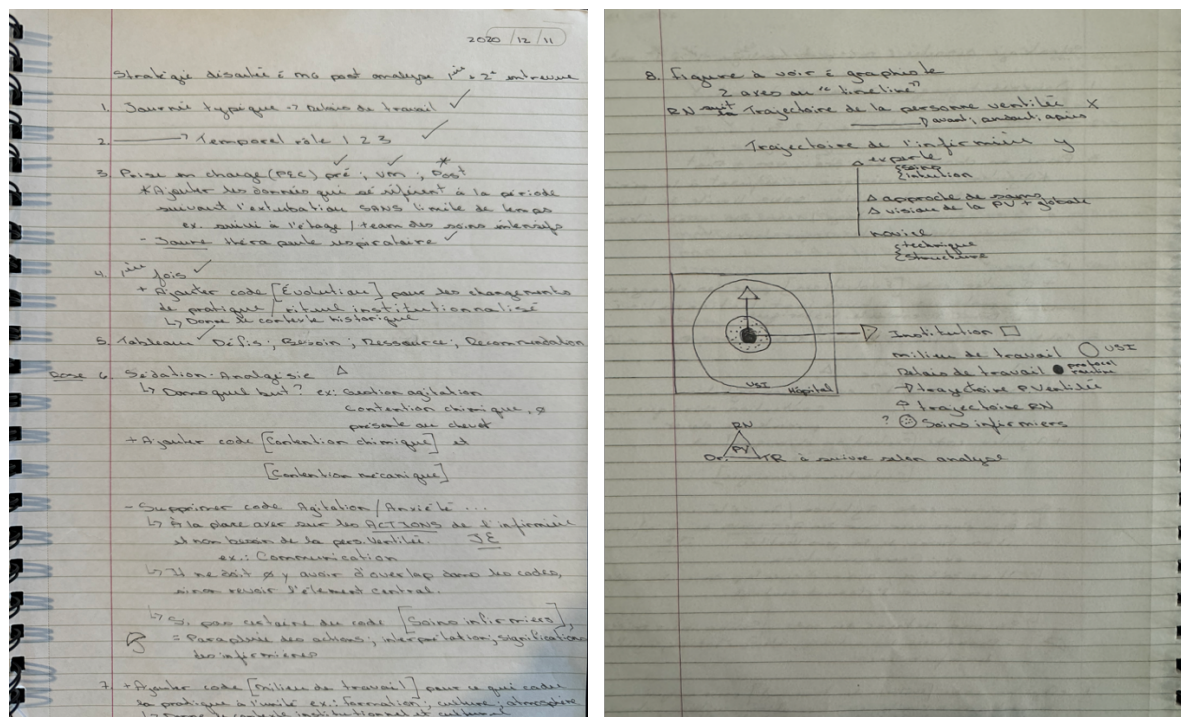 2020/12/11
Stratégie discutée c̄ MG post analyse 1ière + 2e entrevue
1. Journée typique → Relais de travail ✓
2. → Temporel rôle 1 2 3 ✓
3. Prise en charge (PEC) pré ✓; VM ✓; Post *
* Ajouter les données qui se réfèrent à la période
suivant l'extubation SANS limite de temps
ex. suivi à l'étage / team des soins intensifs
- Jaune thérapeute respiratoire ✓
4. 1ière fois ✓
+ Ajouter code [Évolution] pour les changements
de pratique / rituel institutionnalisé
↳ Donne le contexte historique
5. Tableau ✓ Défis; Besoin; Ressource; Recommandation
6. Sédation-Analgésie Δ
↳ Dans quel but? ex: Gestion agitation
Contention chimique, ∅
présente au chevet
+ Ajouter code [Contention chimique] et
[Contention mécanique]
- Supprimer code Agitation/Anxiété...
↳ À la place axer sur les ACTIONS de l'infirmière
et non besoin de la pers. ventilée. JE
ex.: Communication
↳ Il ne doit ∅ y avoir d'overlap dans les codes,
sinon revoir l'élément central.
↳ Si pas certaine du code [Soins infirmiers],
= Parapluie des actions, interprétation, signification
des infirmières
7. + Ajouter code [milieu de travail] pour ce qui cadre
la pratique à l'unité ex.: formation; culture; atmosphère
↳ Donne le contexte institutionnel et culturel
8. Figure à voir c̄ graphiste
2 axes ou "timeline"
RN suit la Trajectoire de la personne ventilée X
→ avant, pendant, après
Trajectoire de l'infirmière y
experte
{ soins
{ intuition
Δ approche de soins
Δ vision de la PV + globale
novice
{ technique
{ structure
Institution □
milieu de travail ○ USI
Relais de travail ● protocol
routine
▷ trajectoire P Ventilée
↑ trajectoire RN
? Soins infirmiers
USI
Hôpital
RN
PV
Dr. TR à suivre selon analyse